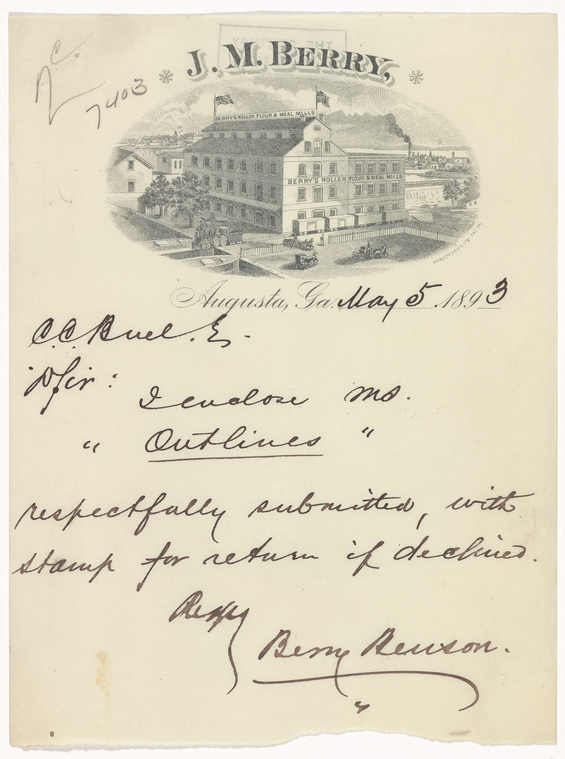 7403
J. M. BERRY,
BERRY'S ROLLER FLOUR & MEAL MILLS
BERRY'S ROLLER FLOUR & MEAL MILLS
Augusta, Ga. May 5 1893
C. C. Buel. E.
D Sir:
I enclose MS.
" Outlines "
respectfully submitted, with
stamp for return if declined.
Respy
Berry Benson.